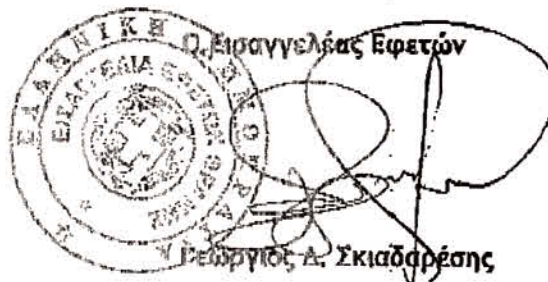 Ο Εισαγγελέας Εφετών
ΕΛΛΗΝΙΚΗ ΔΗΜΟΚΡΑΤΙΑ
ΕΙΣΑΓΓΕΛΙΑ ΕΦΕΤΩΝ ΘΡΑΚΗΣ
Γεώργιος Δ. Σκιαδαρέσης